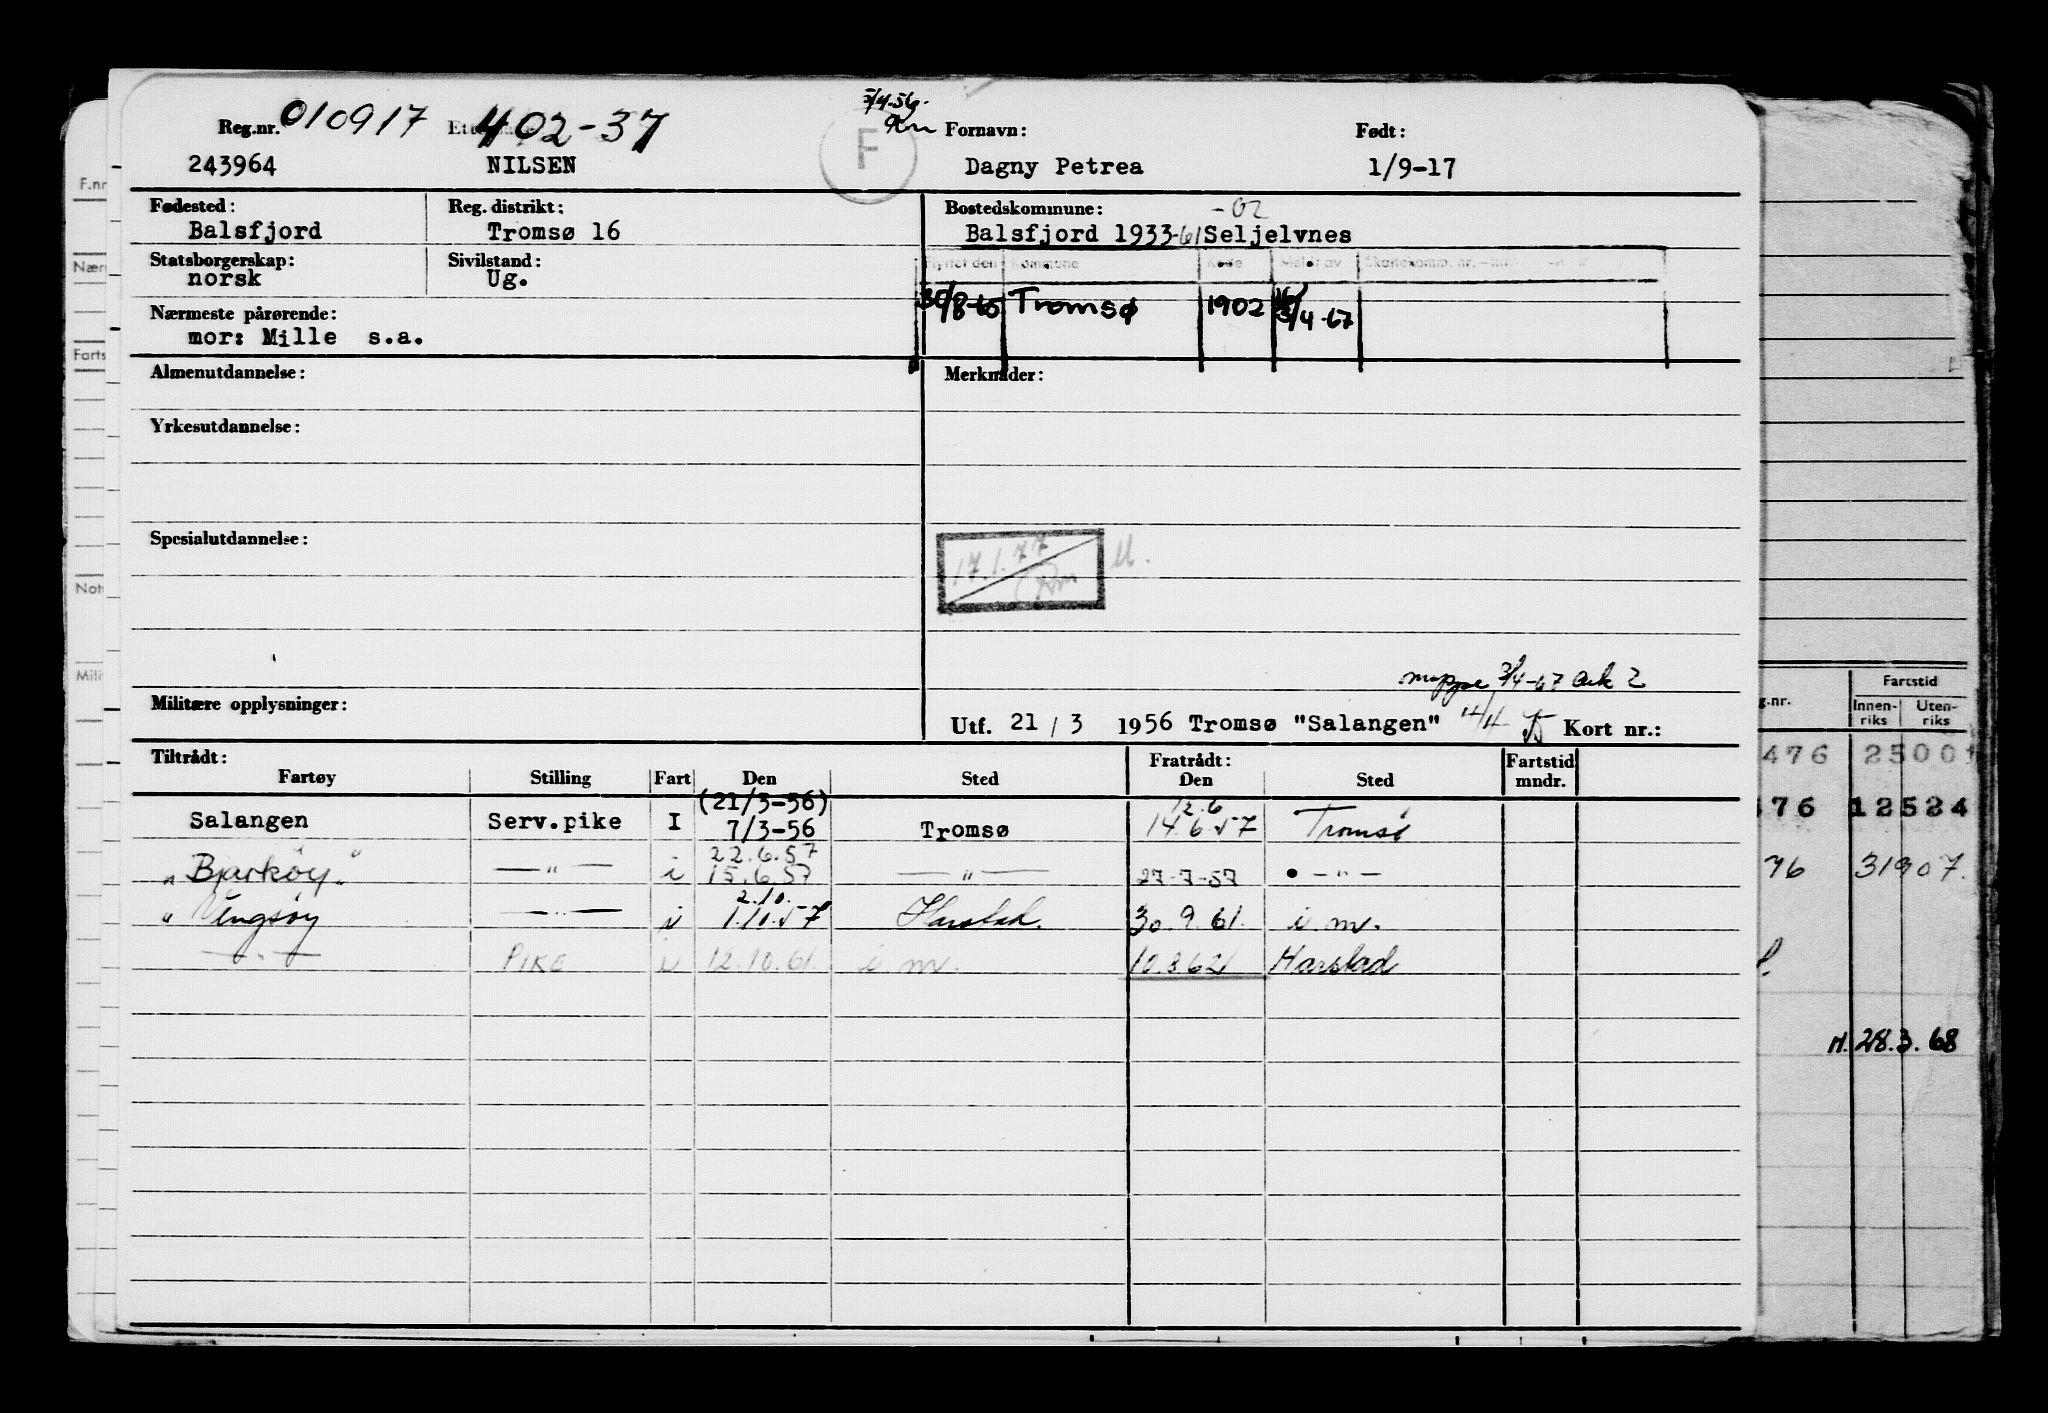 3/4-56.
Reg.nr. 010917 402-37 F Fornavn: Født:
243964 NILSEN Dagny Petrea 1/9-17
Fødested: Reg. distrikt: Bostedskommune: -02
Balsfjord Tromsø 16 Balsfjord 1933-61 Seljelvnes
Statsborgerskap: Sivilstand: Flyttet den Kommune Kode Meldt av
norsk Ug.
30/8-65 Tromsø 1902 3/4-67
Nærmeste pårørende:
mor: Mille s.a.
Almenutdannelse: Merknader:
Yrkesutdannelse:
Spesialutdannelse:
17.1.77
mappe 3/4-67 ark 2
Militære opplysninger:
Utf. 21 / 3 1956 Tromsø "Salangen" Kort nr.:
Tiltrådt: Fratrådt: Fartstid
Fartøy Stilling Fart Den Sted Den Sted mndr.
(21/3-56) 12.6
Salangen Serv.pike I 7/3-56 Tromsø 14.6.57 Tromsø
22.6.57
"Bjarkøy" —"— i 15.6.57 —"— 27-7-57 —"—
2.10.
" Vengsøy —"— i 1.10.57 Harstad. 30.9.61. i. m.
—"— PIKE i 12.10.61. i m. 10.8.62 Harstad
F.nr
Nær
Farts
Not
Mili
g.nr. Fartstid
Innen-riks Uten-riks
476 2500
476 12524
76 31907.
H. 28.3.68